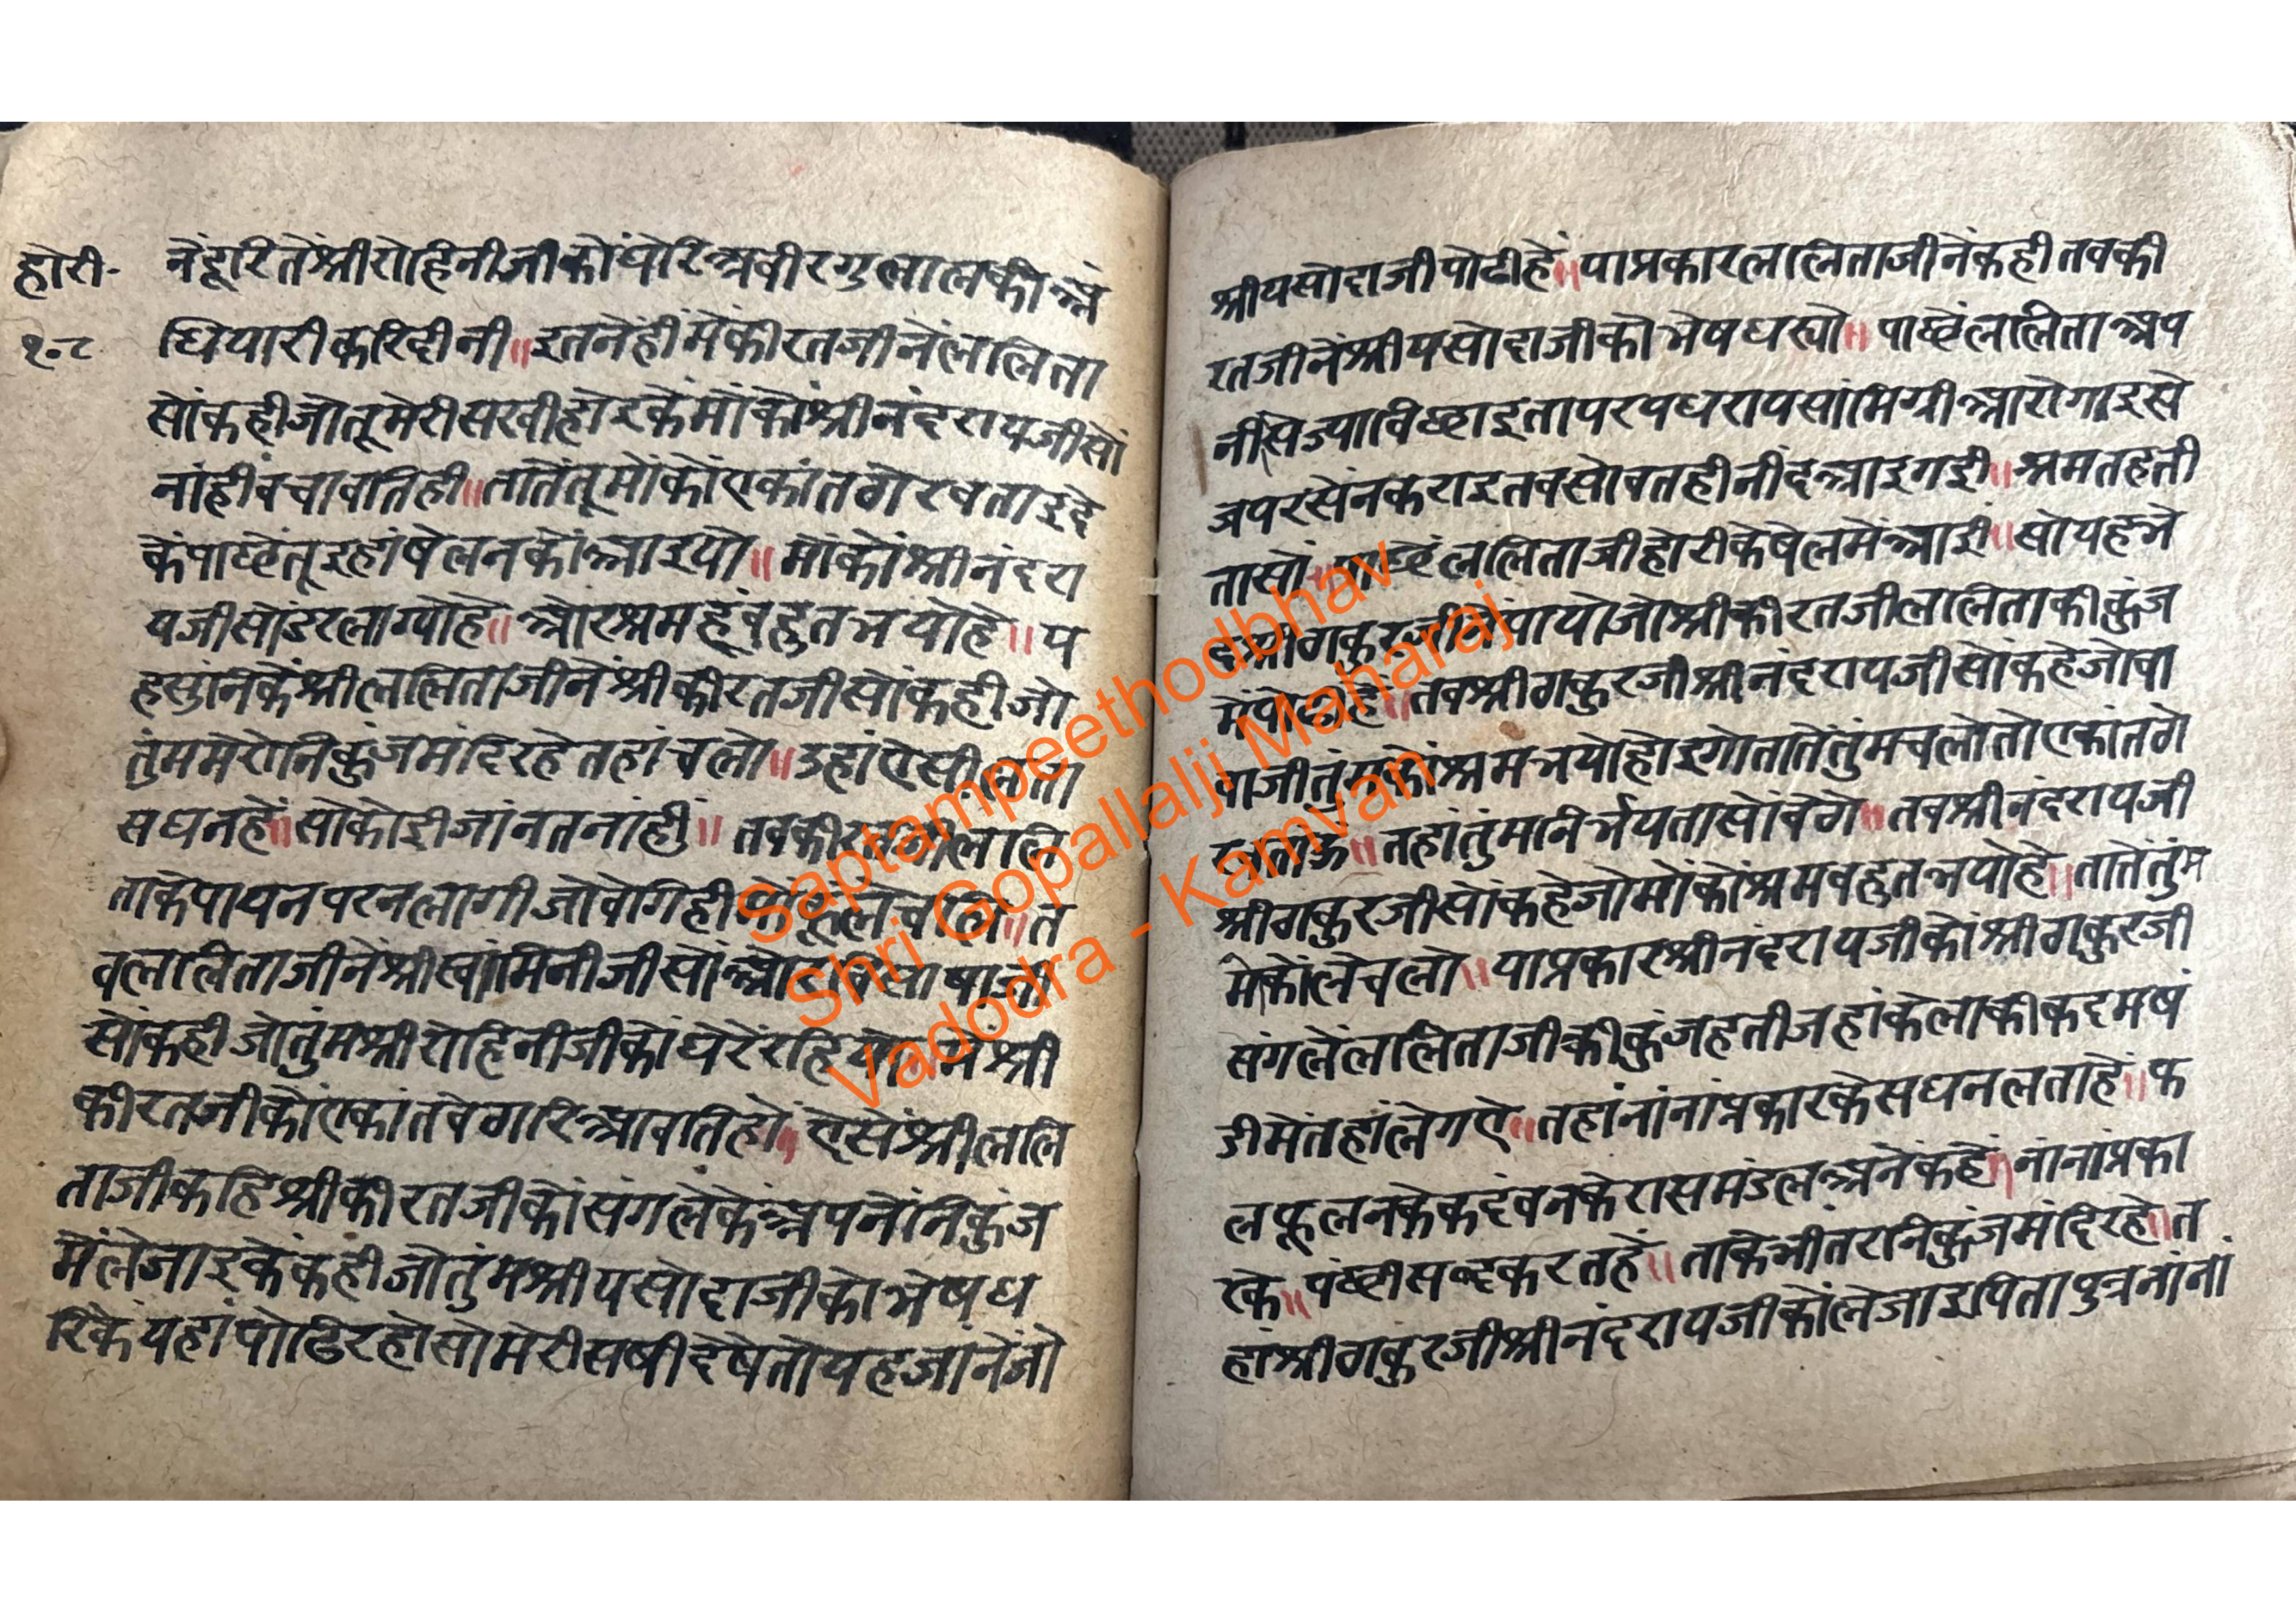 होरी॰
१०८
नेंदूरितेंश्रीरोहिनीजीकोंघेरिअबीरगुलालकीअं
धियारीकरिदीनी॥इतनेंहींमेंकीरतजीनेंललिता
सोंकहीजोतूमेरीसखीहोइकेंमोंकोंश्रीनंदरायजीसों
नांहीबचावतिही॥तातेंतूमोंकोंएकांतठोरबताइदे
केंपाछेंतूइहांषेलनकोंआइयो॥मोंकोंश्रीनंदरा
यजीसोंडरलाग्योहे॥ओरश्रमहूबहुतभयोहे॥य
हसुनिकेंश्रीललिताजीनेंश्रीकीरतजीसोंकहीजो
तुंममेरोनिकुंजमंदिरहेतहांचलो॥उहांऐसीलता
सघनहें॥सोकोईजांनतनांहीं॥तबकीरतजीललि
ताकेपायनपरनलागीजोबेगिही लेचलि॥त
बललिताजीनेंश्रीस्वामिनीजीसों विसाषाजी
सोंकहीजोतुंमश्रीरोहिनीजीकोंघेरेंरहियो॥मेंश्री
कीरतजीकोंएकांतबेठारिआवतिहों॥ऐसेंश्रीललि
ताजीकहिश्रीकीरतजीकोंसंगलेकेंअपनेंनिकुंज
मेंलेजाइकेंकहीजोतुंमश्रीयसोदाजीकोभेषध
रिकेंयहांपोढिरहोसोमेरीसषीदेषेतोयहजानेंजो
श्रीयसोदाजीपोढीहें॥याप्रकारललिताजीनेंकहीतबकी
रतजीनेंश्रीयसोदाजीकोभेषधर्‍यो॥पाछेंललिताअप
नींसेज्याबिछाइतापरपधरायसांमिग्रीआरोगाइसे
जपरसेंनकराइतबसोवतहीनींदआइगई॥श्रमतहती
तासों॥पाछेंललिताजीहोरीकेषेलमेंआई॥सोयहभे
दश्रीठाकुरजीनेंपायोजोश्रीकीरतजीललिताकीकुंज
मेंपोढीहें॥तबश्रीठाकुरजीश्रीनंदरायजीसोंकहेजोबा
बाजीतुंमकोंश्रमभयोहोइगोतातेंतुंमचलोतोएकांतठो
रबताऊं॥तहांतुंमनिर्भयतासोंबेठो॥तबश्रीनंदरायजी
श्रीठाकुरजीसोंकहेजोमोंकोंश्रमबहुतभयोहे॥तातेंतुंम
मेकोंलेचलो॥याप्रकारश्रीनंदरायजीकोंश्रीठाकुरजी
संगलेंललिताजीकीकुंजहतीजहांकेलाकीकदमषं
डीमेंतहांलेगऐ॥तहांनांनांप्रकारकेसघनलताहें॥फ
लफूलनकेकदंबनकेरासमंडलअनेंकहें॥नांनांप्रका
रके॥पंछीसब्दकरतहें॥ताकेभींतरनिकुंजमंदिरहे॥त
हांश्रीठाकुरजीश्रीनंदरायजीकोंलेजाइपितापुत्रनांनां
Saptampeethodbhav
Shri Gopallalji Maharaj
Vadodra - Kamvan